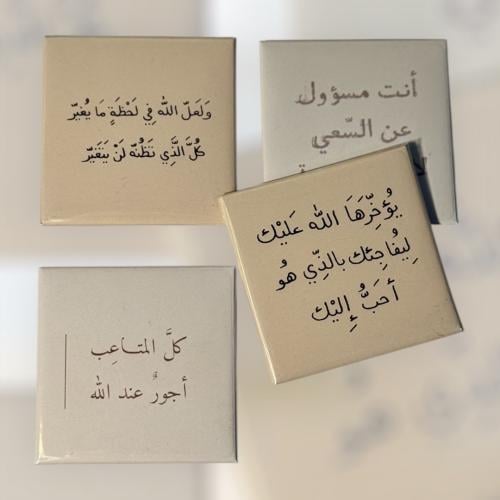 وَلَعَلّ اللّه فِي لَحْظَةٍ مَا يُغَيّر
كُلَّ الَّذِي تَظُنّه لَنْ يَتَغَيّر
أنت مسؤول
عن السّعي
يُؤَخِّرُهَا اللّه عَلَيْك
لِيُفَاجِئك بالذِّي هُو
أحَبُّ إِليْك
كلَّ المتاعِب
أجورٌ عند الله